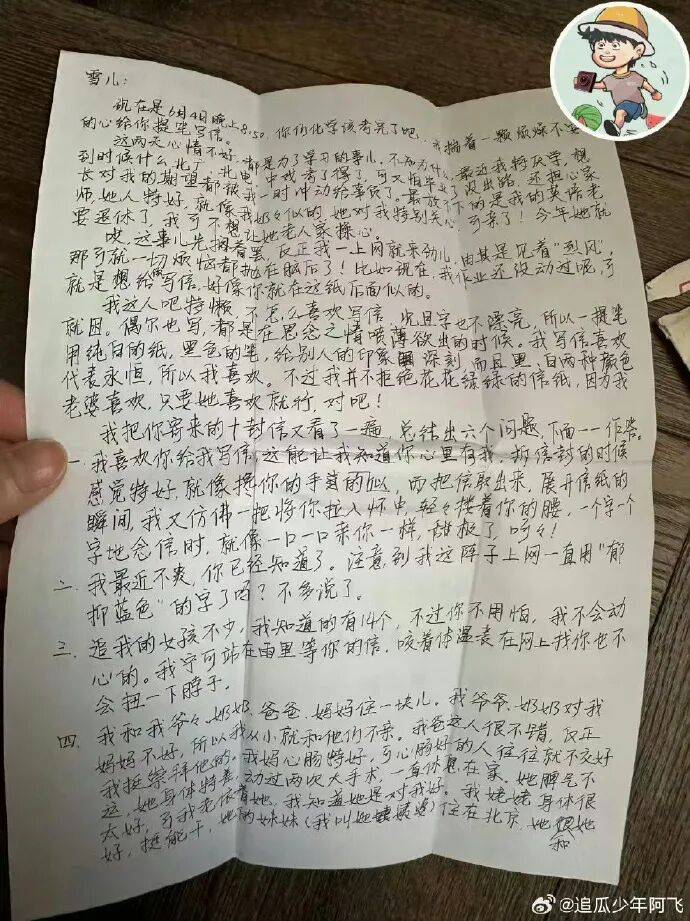 雪儿:
现在是6月4日晚上8:50,你们化学该考完了吧,我揣着一颗烦燥不安
的心给你提笔写信。
这两天心情不好,都是为了学习的事儿,不知为什么,最近我特厌学,想
到时候什么北广、北电、中戏考了得了,可又怕毕业了没出路,还担心家
长对我的期望都被我一时冲动给辜负了。最放不下的是我的英语老
师,她人特好,就像我奶々似的,她对我特别关心,可亲了!今年她就
要退休了,我可不想让她老人家操心。
哎,这事儿先搁着罢,反正我一上网就来劲儿,由其是见着“烈风”,
那可就一切烦恼都抛在脑后了!比如现在,我作业还没动过呢,可
就是想给你写信,好像你就在这纸后面似的。
我这人吧特懒,不怎么喜欢写信,况且字也不漂亮,所以一提笔
就困。偶尔也写,都是在思念之情喷薄欲出的时候。我写信喜欢
用纯白的纸,黑色的笔,给别人的印象深刻,而且黑、白两种颜色
代表永恒,所以我喜欢。不过我并不拒绝花花绿绿的信纸,因为我
老婆喜欢,只要她喜欢就行,对吧!
我把你寄来的十封信又看了一遍,总结出六个问题,下面一一作答。
一、我喜欢你给我写信,这能让我知道你心里有我,拆信封的时候
感觉特好,就像搀你的手道的似,而把信取出来,展开信纸的
瞬间,我又仿佛一把将你拉入怀中,轻々搂着你的腰,一字一个
字地念信时,就像一口一口亲你一样,甜极了,呵々!
二、我最近不爽,你已经知道了。注意到我这阵子上网一直用“郁
抑蓝色”的字了吗?不多说了。
三、追我的女孩不少,我知道的有14个,不过你不用怕,我不会动
心的。我宁可站在雨里等你的信,咬着体温表在网上找你也不
会扭一下脖子。
四、我和我爷々、奶奶、爸爸、妈妈住一块儿。我爷爷、奶奶对我
妈妈不好,所以我从小就和他们不亲。我爸这人很不错,反正
我挺崇拜他的。我妈心肠特好,可心肠好的人往往就不交好
运,她身体特差,动过两次大手术,一直休息在家。她脾气不
太好,可我老依着她,我知道她是对我好。我姥姥身体很
好,挺能干,她的妹妹(我叫她姨姥姥)住在北京,她和她
@追瓜少年阿飞